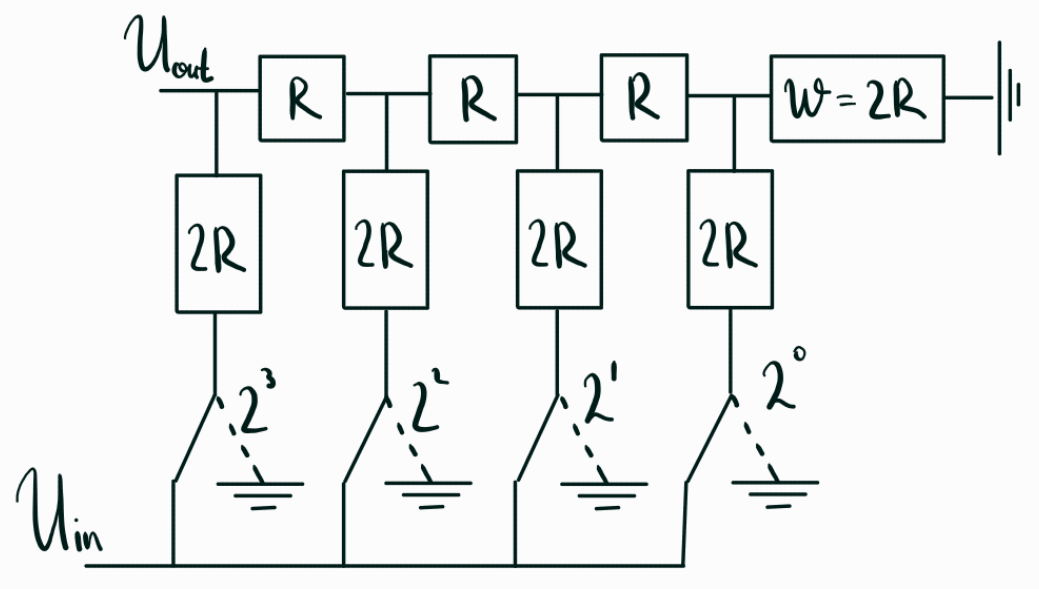 U_out
R R R W = 2R
2R 2R 2R 2R
2³ 2² 2¹ 2⁰
U_in